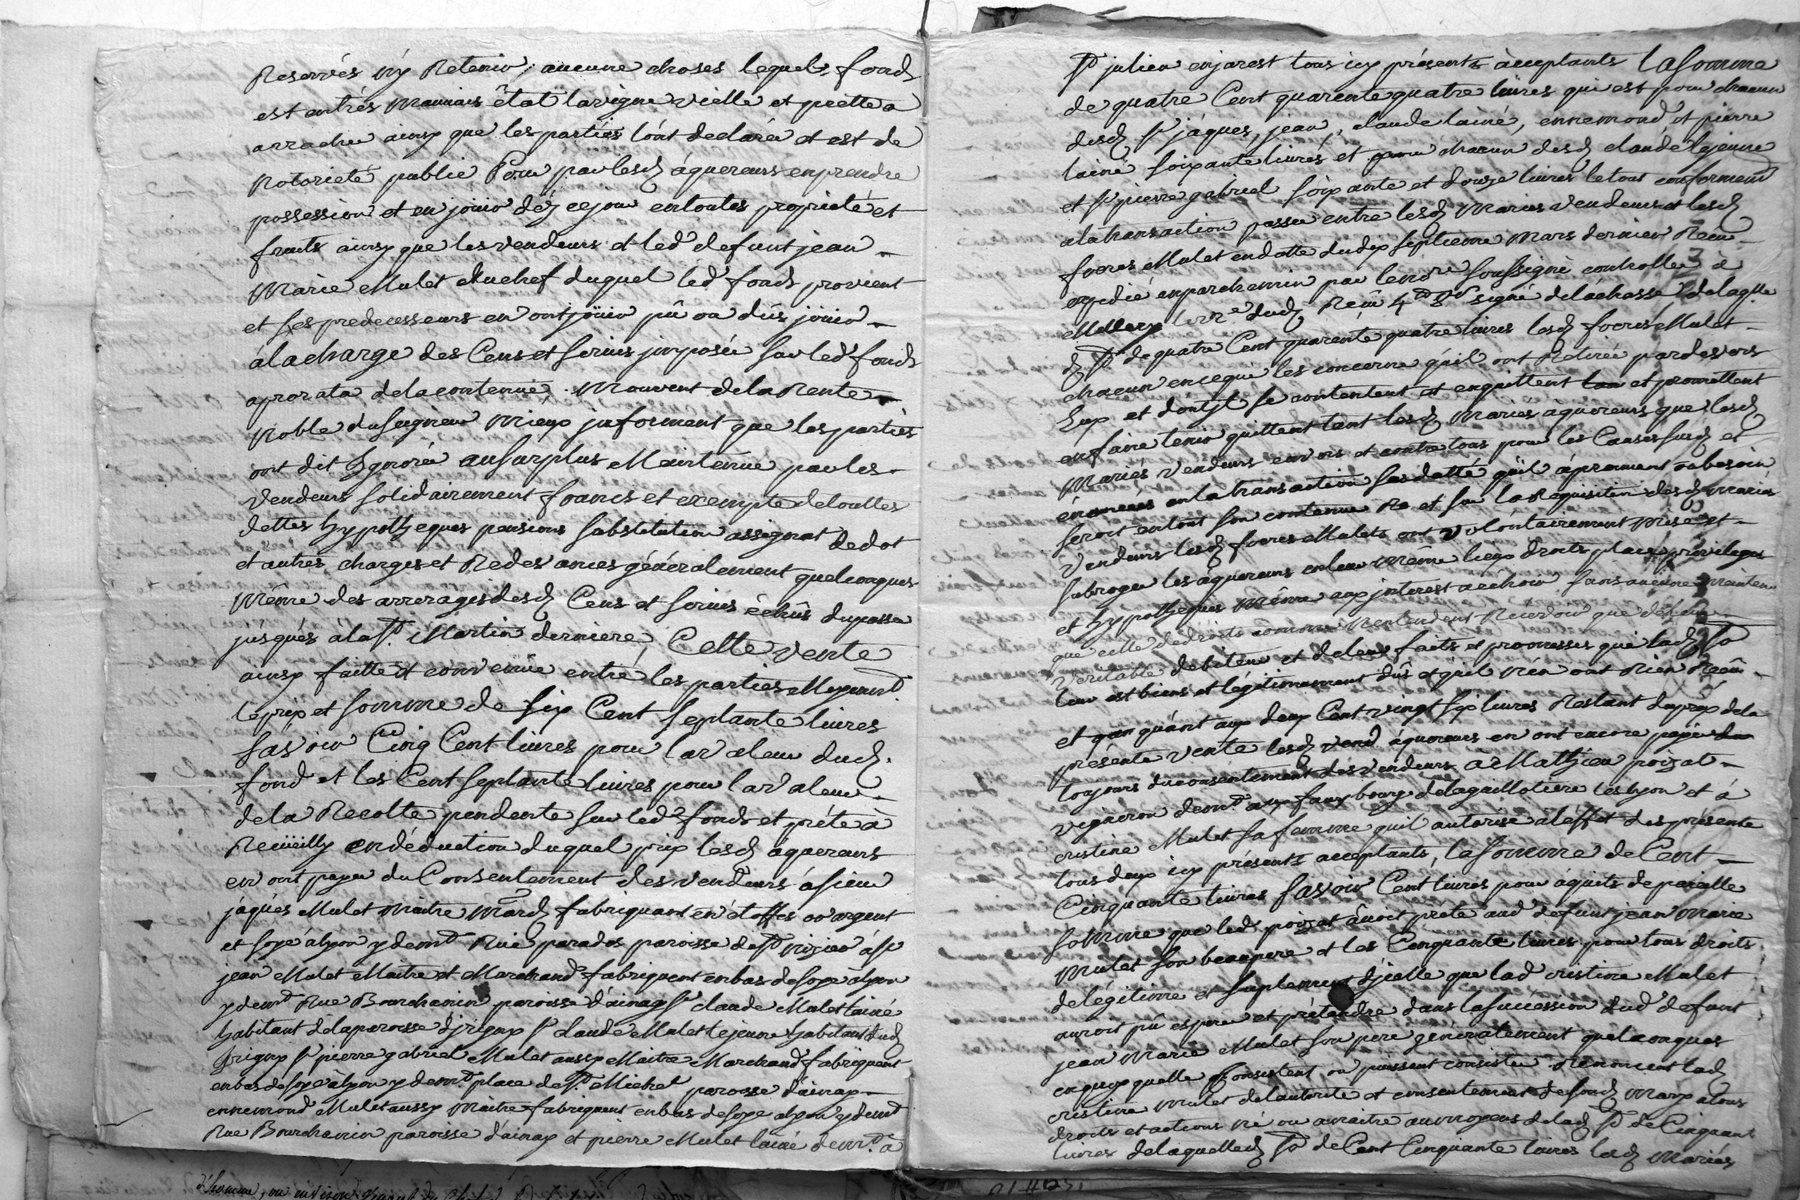 Reservés ny Retenir, aucune choses lequels fonds
est entrés mauvais êtat la vigne vielle et preste a
arracher ainsy que les parties l'ont declaré et est de
Notorieté public Pour par lesd aquereurs en prendre
possession et en jouir déz ce jour en toutes proprieté et
fruits ainsy que les vendeurs et led defunt jean
Marie Mulet du chef duquel led fonds provient
et ses predecesseurs en ont joüir pû ou dûs jouir
à la charge des Cens et servis imposée sur led fonds
a prorata de la contenüe. Mouvent de la Rente
Noble du seigneur mieux informent que les parties
ont dit Ignorée au surplus Maintenue par les
Vendeurs solidairement francs et exempte de toutes
dettes hypotheques pensions substitution assignat de dot
et autres charges et Redevances généralement quelconques
Même des arrerages desd Cens et servis échûs du passé
jusqués a la St Martin derniere, Cette vente
ainsy faitte et convenüe entre les parties Moyennt
le prix et somme de six Cent septante livres
savoir Cinq Cent livres pour la valeur dud
fond et les Cent septante livres pour la valeur
de la Recolte pendente sur led fonds et prête à
Reciieilly en déduction duquel prix lesd aquereurs
en ont payer du Consentement des vendeurs à sieur
jâques Mulet Maitre Mard fabriquant en étoffes or argent
et soye à lyon y demt Rüe parados paroisse de St nizier
jean Mulet Maitre et Marchand fabriquent en bas de soye à lyon
y demt Rue Bourchanin paroisse d'ainay sr claude Mulet l'ainé
habitant de la paroisse d'jrigny sr claude Mulet le jeune habitant dud
Jrigny sr pierre gabriel Mulet aussy Maitre Marchand fabriquent
en bas de soye à lyon y demt place de St Michel paroisse d'ainay
ennemond Mulet aussy Maitre fabriquent en bas de soye a lyon y demt
Rue Bourchanin paroisse d'ainay et pierre Mulet l'ainé demt à
St julien enjarest tous icy présents acceptants la somme
de quatre Cent quarente quatre livres qui est pour chacun
desd sr jâques, jean, claude l'ainé, ennemond et pierre
l'ainé soixante livres et pour chacun desd claude le jeune
et sr pierre gabriel soixante et douze livres le tout conforment
a la transaction passée entre lesd Mariés vendeurs et lesd
freres Mulet en datte du dix septieme Mars dernier Recue
expedié en parchemin par le nore soussigné controllée à
Millery le dud Reçu signé delachasse de laqlle
de St de quatre Cent quarente quatre livres lesd freres Mulet
chacun en ce qui les concerne qu'il ont Retirée pardevers
Eux et dont jl se contentent et enquittent et promettent
en faire tenir quittent tant lesd Mariés aquereurs que lesd
Mariés vendeurs envers et contre tous pour les Causes susd et
enoncées en la transaction sus datté qu'il aprouvent au besoin
seroit en tout son contenu Re et sur la Requisition desd mariés
Vendeurs lesd freres Mulets ont volontairement mise et
subroger les aquereurs en leur même lieux droits place privileges
et hypotheques Même aux interest a échoir sans aucune mainten
que celle de droits comme Rentendent Recevoir que de leur
veritable debiteur et de leur faits et promesses que lad St
leur est biens et légitimement dûe et qu'il n'en ont Rien Reçu
et quant aux deux Cent vingt six livres Restant du prix de la
présente vente lesd vend aquereurs en ont encore payé
toujours du consentement des vendeurs à Mathieu poizat
vigneron demt aux fauxbourg de la guillotiere les lyon et à
cristine Mulet sa femme quil autorise à l'effet des présente
tous deux icy présents acceptants, la somme de Cent
Cinquante livres savoir Cent livres pour àquits de pareille
somme que led poizat avoit prêté aud defunt jean Marie
Mulet son beaupere et les Cinquante livres pour tous droits
de légitime et suplement d'jcelle que lad cristine Mulet
auroit pû esperer et prétendre dans la succession dud defunt
jean Marie Mulet son pere généralement quelconques
en quoy quelle consistent ou puissent consister Renoncent lad
cristine Mulet de l'autorité et consentement de sond mary a tous
droits et actions né ou a naitre au moyens de lad St de Cinquant
livres de laquelled St de Cent Cinquante livres lesd Mariés